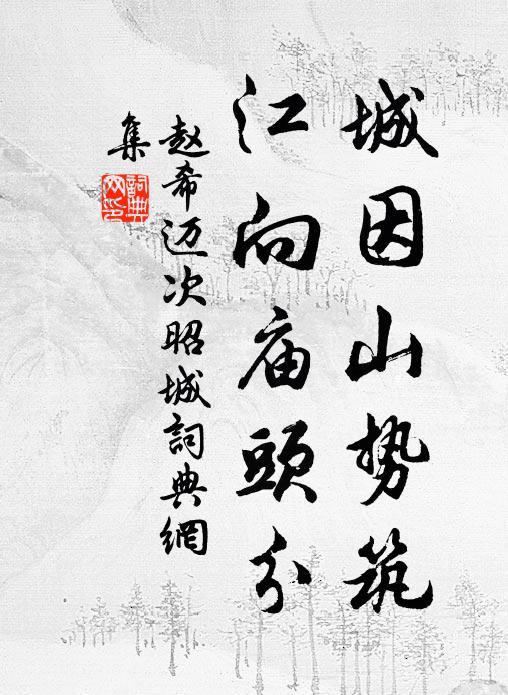 城因山势筑
江向庙頭分
赵希迈次昭城詞典網
集
詞典
网印